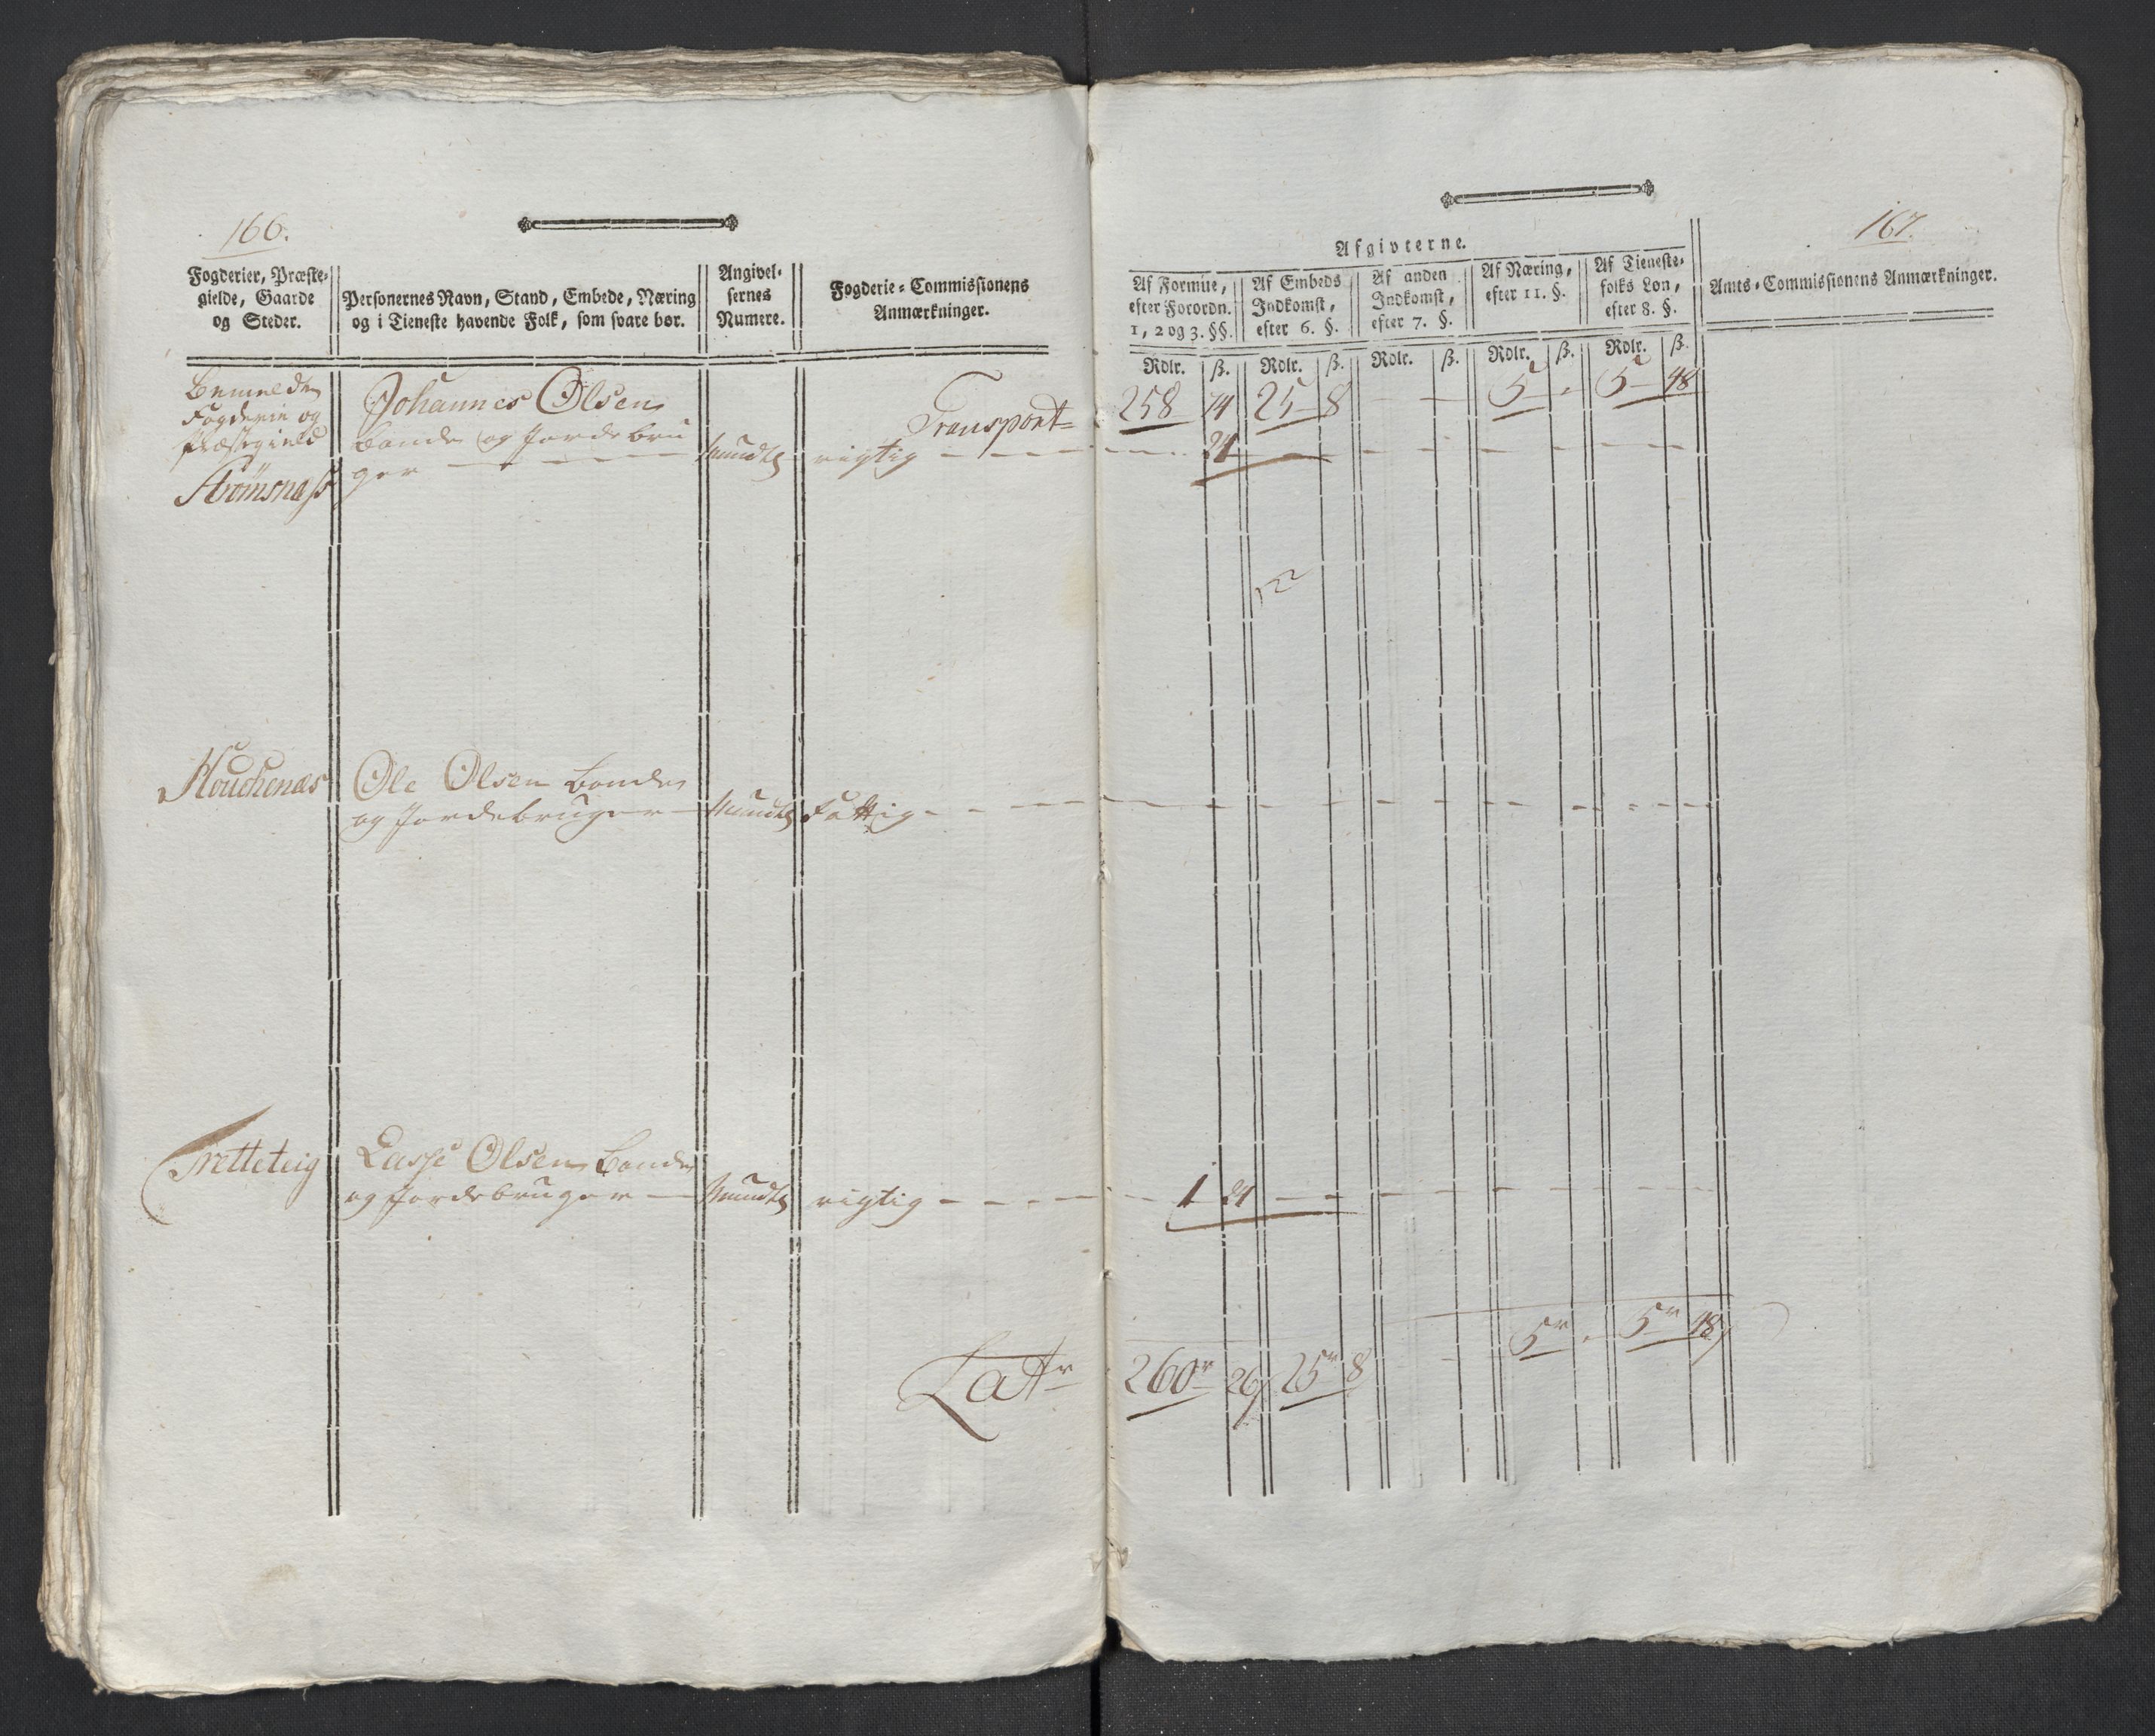 166.
Fogderier, Præste-
gielde, Gaarde
og Steder.
Personernes Navn, Stand, Embede, Næring
og i Tieneste havende Folk, som svare bør.
Angivel-
sernes
Numere.
Fogderie-Commissionens
Anmærkninger.
Bemeldte
Fogderie og
Præstegield
Strömsnæss
Johannes Olsen
Bonde og Jordebru
ger
Mundtl
rigtig
Transport
Houchenæs
Ole Olsen Bonde
og Jordebruger
Mundtl
Fattig
Tretteteig
Lasse Olsen Bonde
og Jordebruger
Mundtl
rigtig
Latr
167.
Afgivterne.
Af Formue,
efter Forordn.
1, 2 og 3. §§.
Af Embeds
Indkomst,
efter 6. §.
Af anden
Indkomst,
efter 7. §.
Af Næring,
efter 11. §.
Af Tieneste-
folks Løn,
efter 8. §.
Amts-Commissionens Anmærkninger.
Rdlr. ß. Rdlr. ß. Rdlr. ß. Rdlr. ß. Rdlr. ß.
258 74 25 8 - - 5 - 5 48
24
1 24
260r 26 25r 8 - 5r - 5r 48